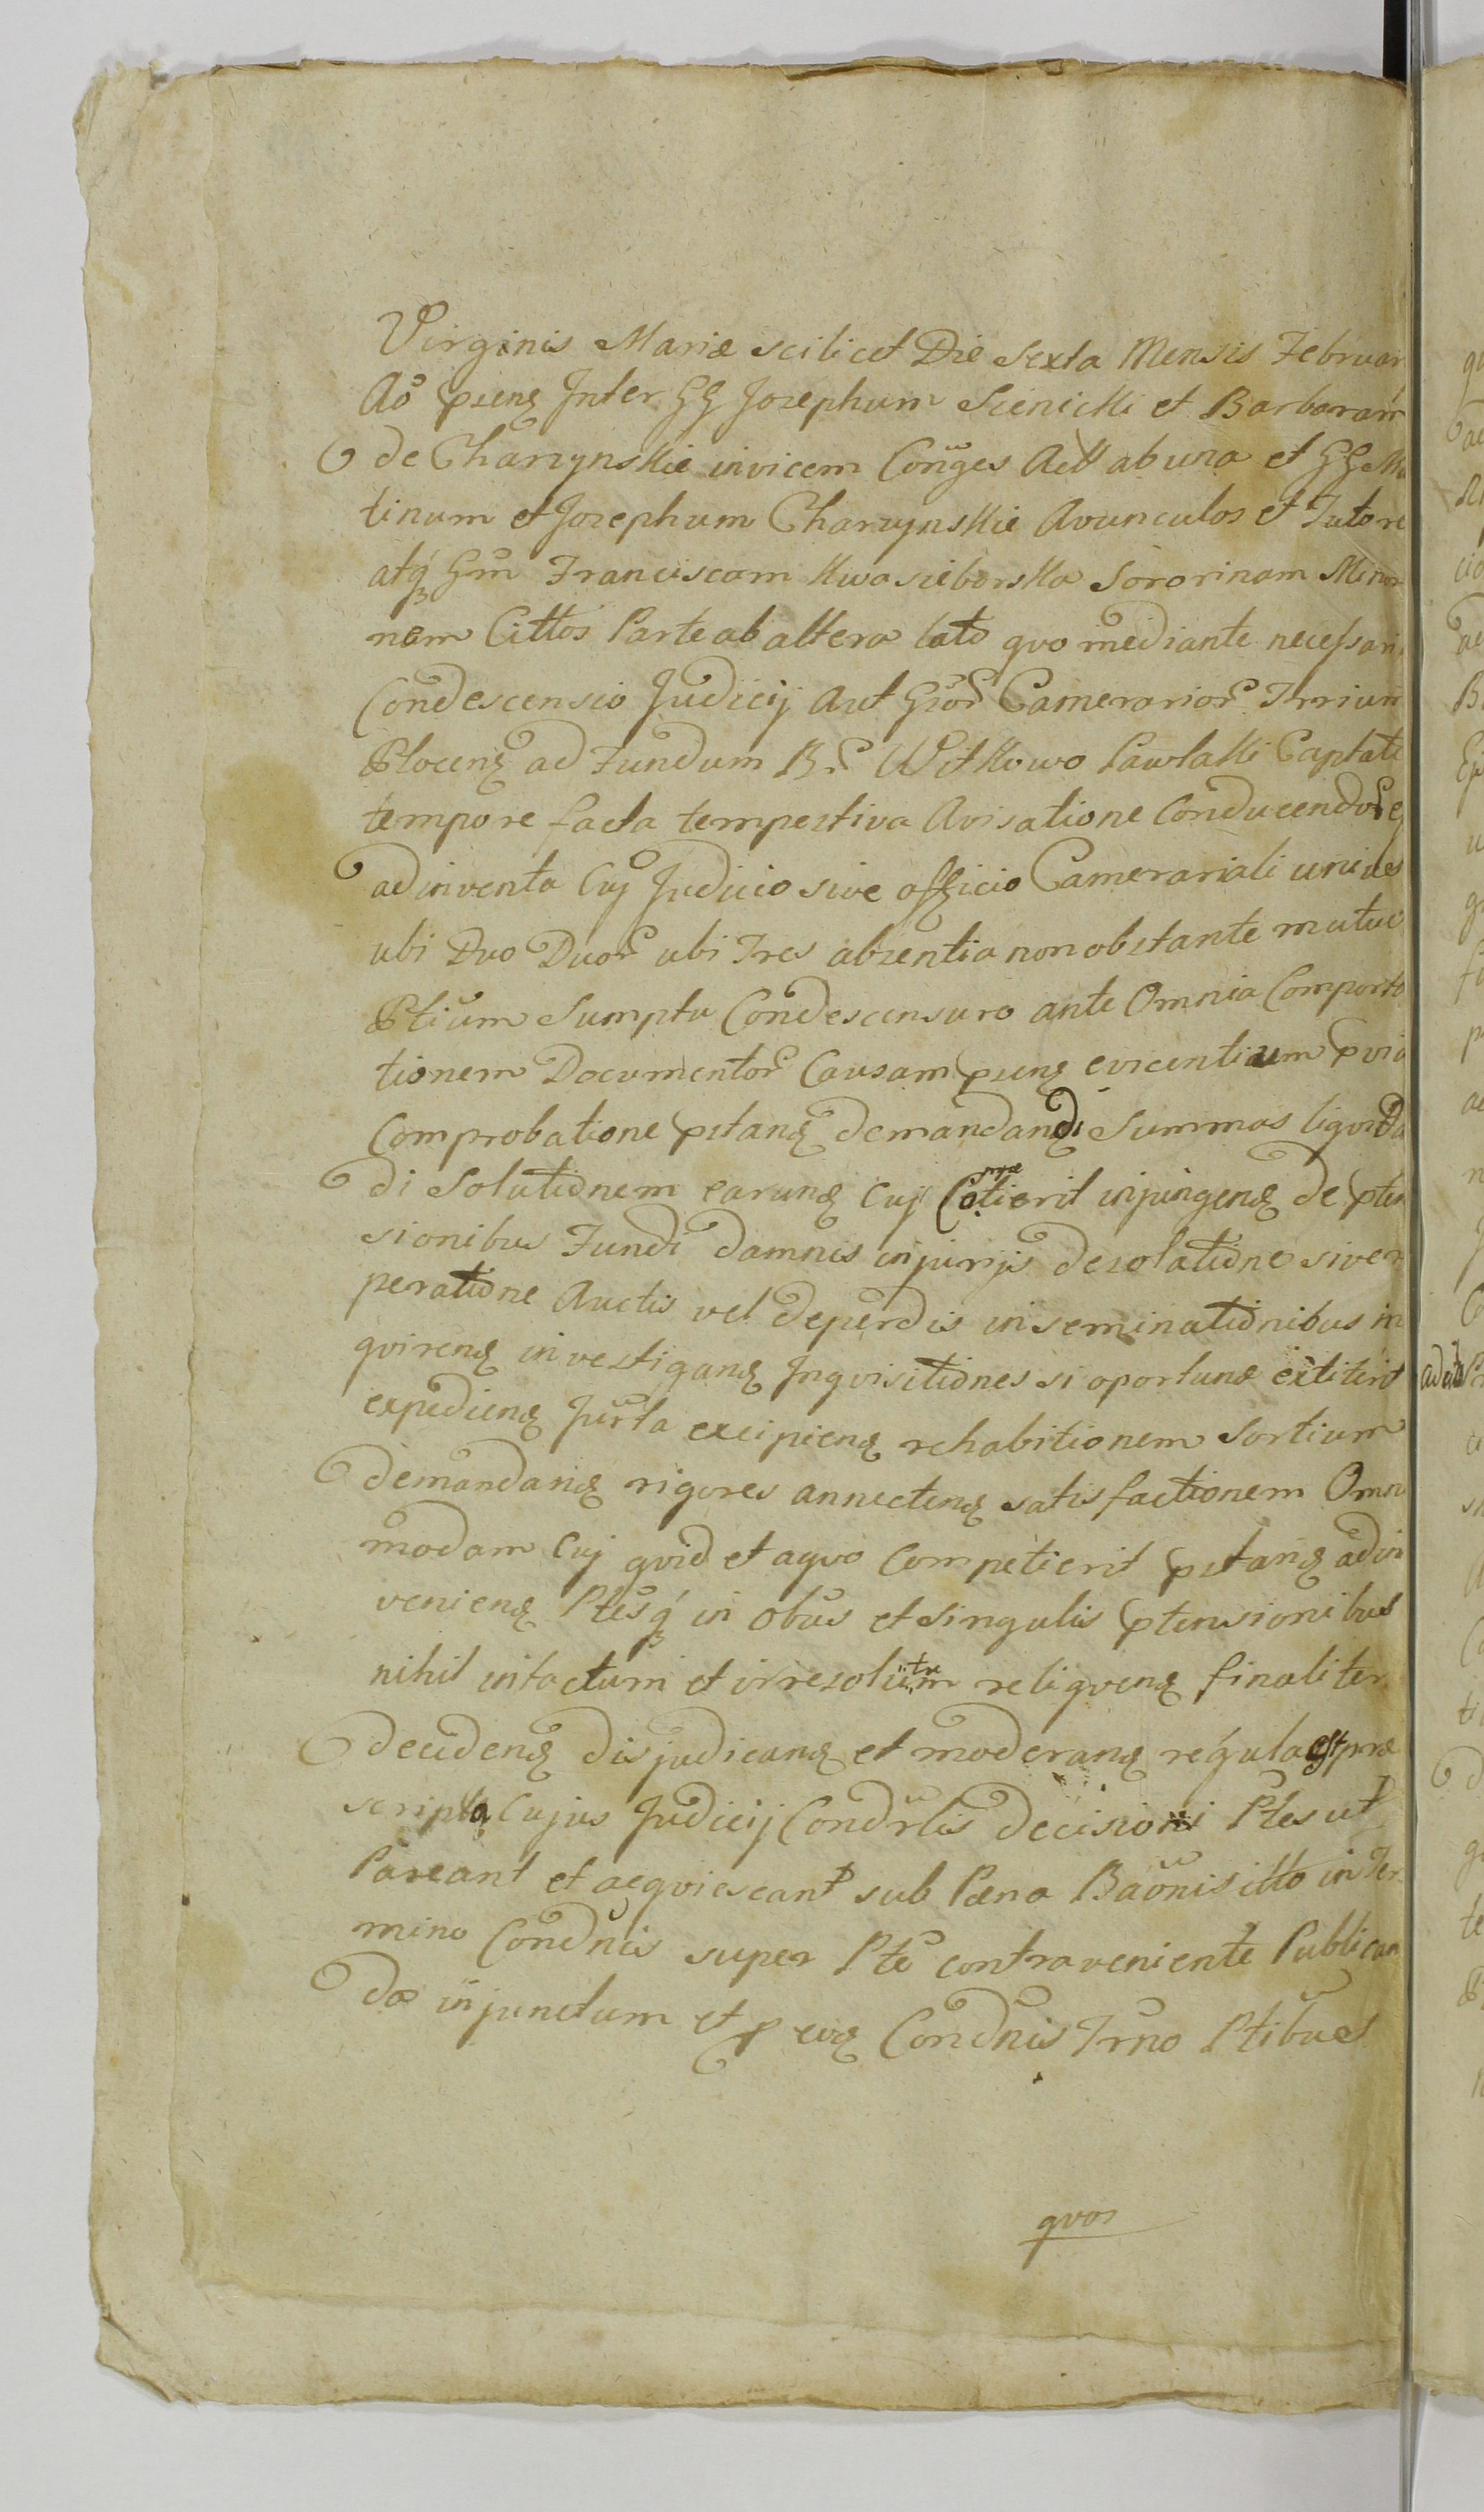 Virginis Mariæ scilicet Die Sexta Mensis Februar
Ao psens Inter GG Josephum Sienicki et Barbaram
de Charzynskie invicem Conges Actt ab una et GG Ma
tinum et Josephum Charzynskie Avunculos et Tutore
atq Gm Franciscam Kwasieborska Sororinam Minor
nem Cittos Parte ab altera lato quo mediante necessari
Condescensio Judicij aut Gsor Camerarior Trrium
Plocens ad Fundum B.r Witkowo Pawlaki Captato
tempore facta tempestiva Avisatione Conducendor e
adinventa Cuj Judicio sive officio Camerariali unius
ubi Duo Duor ubi Tres absentia non obstante mutuo
Ptium Sumptu Condescensuro ante Omnia Comporta
tionem Documentor Causam psens evicentium pvia
Comprobatione pstans demandandi Summas liquida
di Solutionem earunq cuj Cotierit injungens de pten
sionibus Fundi damnis injurijs desolatione sive r
peratione Auctis vel deperdis inseminationibus in
quirens investigans Inquisitiones si oportunæ extiterit
expediens Jurta excipiens rehabitionem Sortium
demandans rigores annectens satisfactionem Omni
modam Cuj quid et aquo Competierit pstans adin
veniens Ptesq in obus et singulis ptensionibus
nihil intactum et irresolutum relinquens finaliter
decidens disjudicans et moderans regula est præ
scripta Cujus Judicij Condrlis decisioni Ptes ut
Pareant et acquiescant sub Pæna Baonis itto in Ter
mino Condnis super Pte contraveniente Publican
dæ injunctum et p eoq Condnis Trno Ptibus
quos